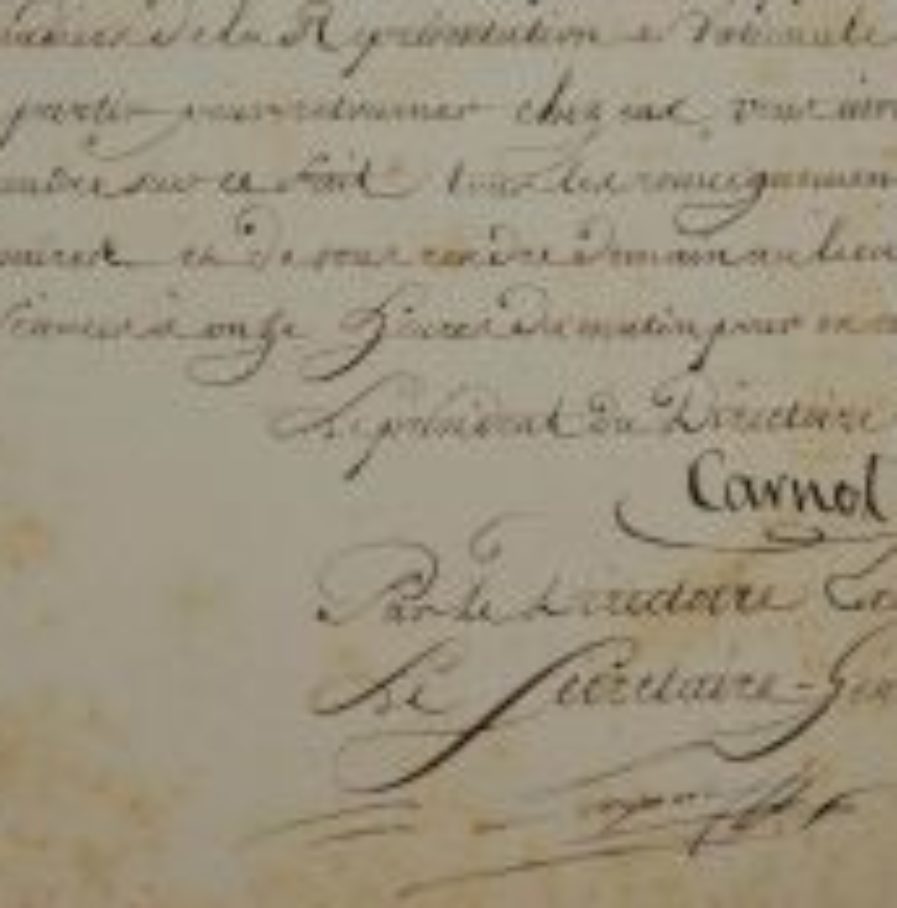 de la Représentation Nationale
partir pour retourner chez eux, vous
sur ce fait tous les renseignemen
et de vous rendre demain au lieu
Séances à onze heures du matin pour
Le président du Directoire
Carnot
Par le Directoire
Le Secrétaire-Gén